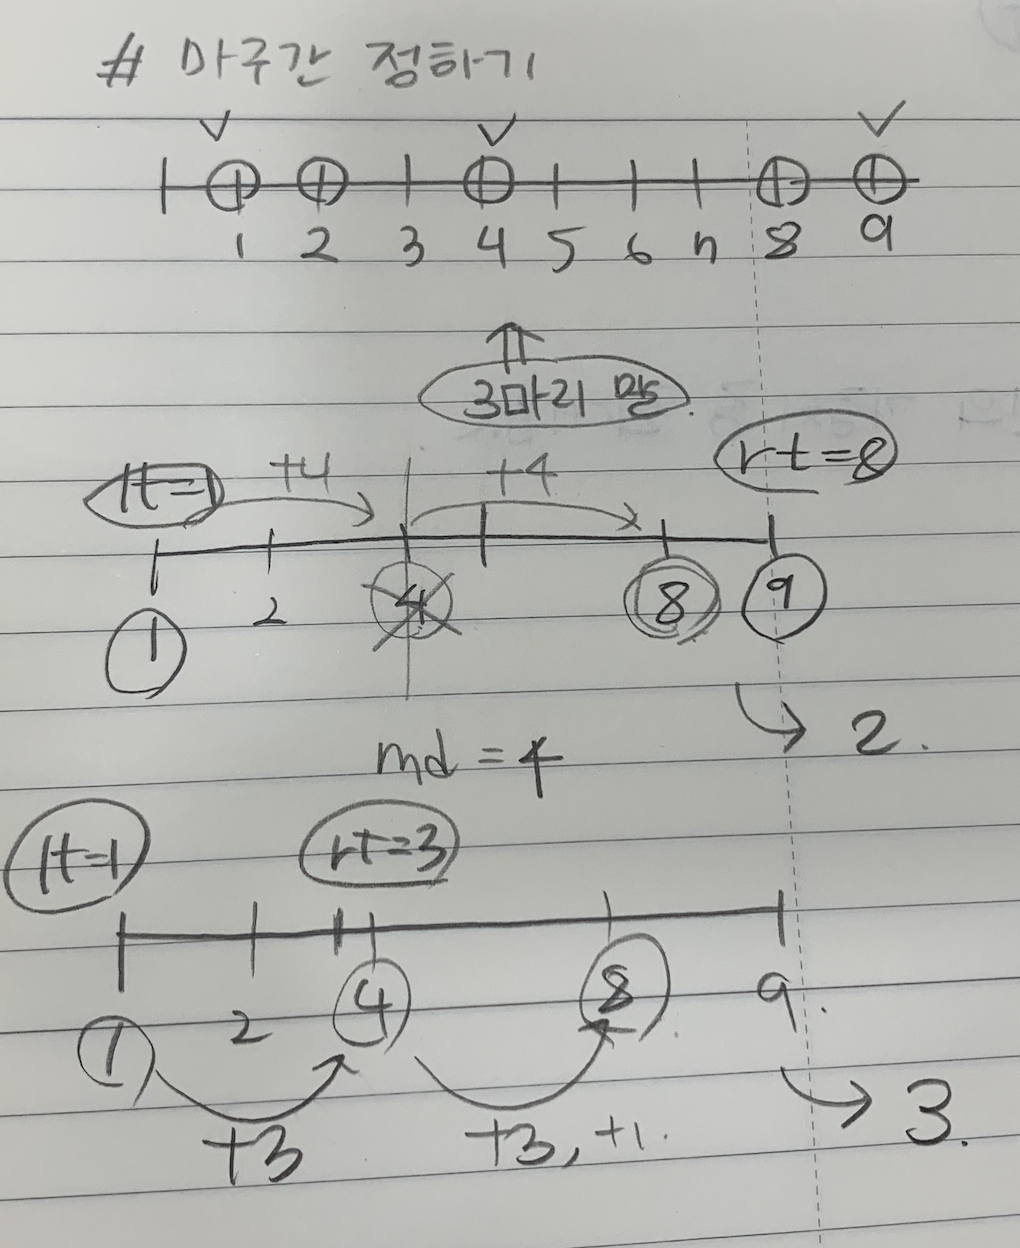 # 마구간 정하기
1 2 3 4 5 6 7 8 9
3마리 말.
lt=1 +4 +4 rt=8
1 2 4 8 9
2.
md = 4
lt=1 rt=3
1 2 4 8 9.
+3 +3, +1. 3.